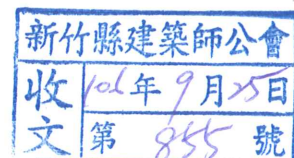 新竹縣建築師公會
收文
106年9月25日
第855號